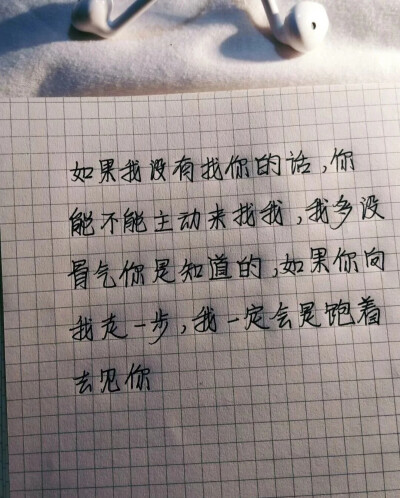 如果我没有找你的话,你
能不能主动来找我,我多没
骨气你是知道的,如果你向
我走一步,我一定会是跑着
去见你